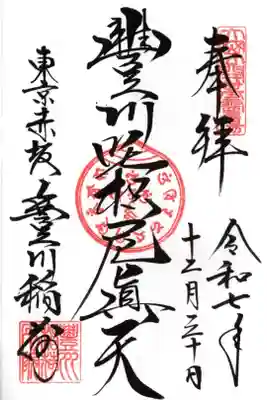 奉拝
令和七年
十二月三十日
豐川吒枳尼眞天
東京赤坂豊川稲荷